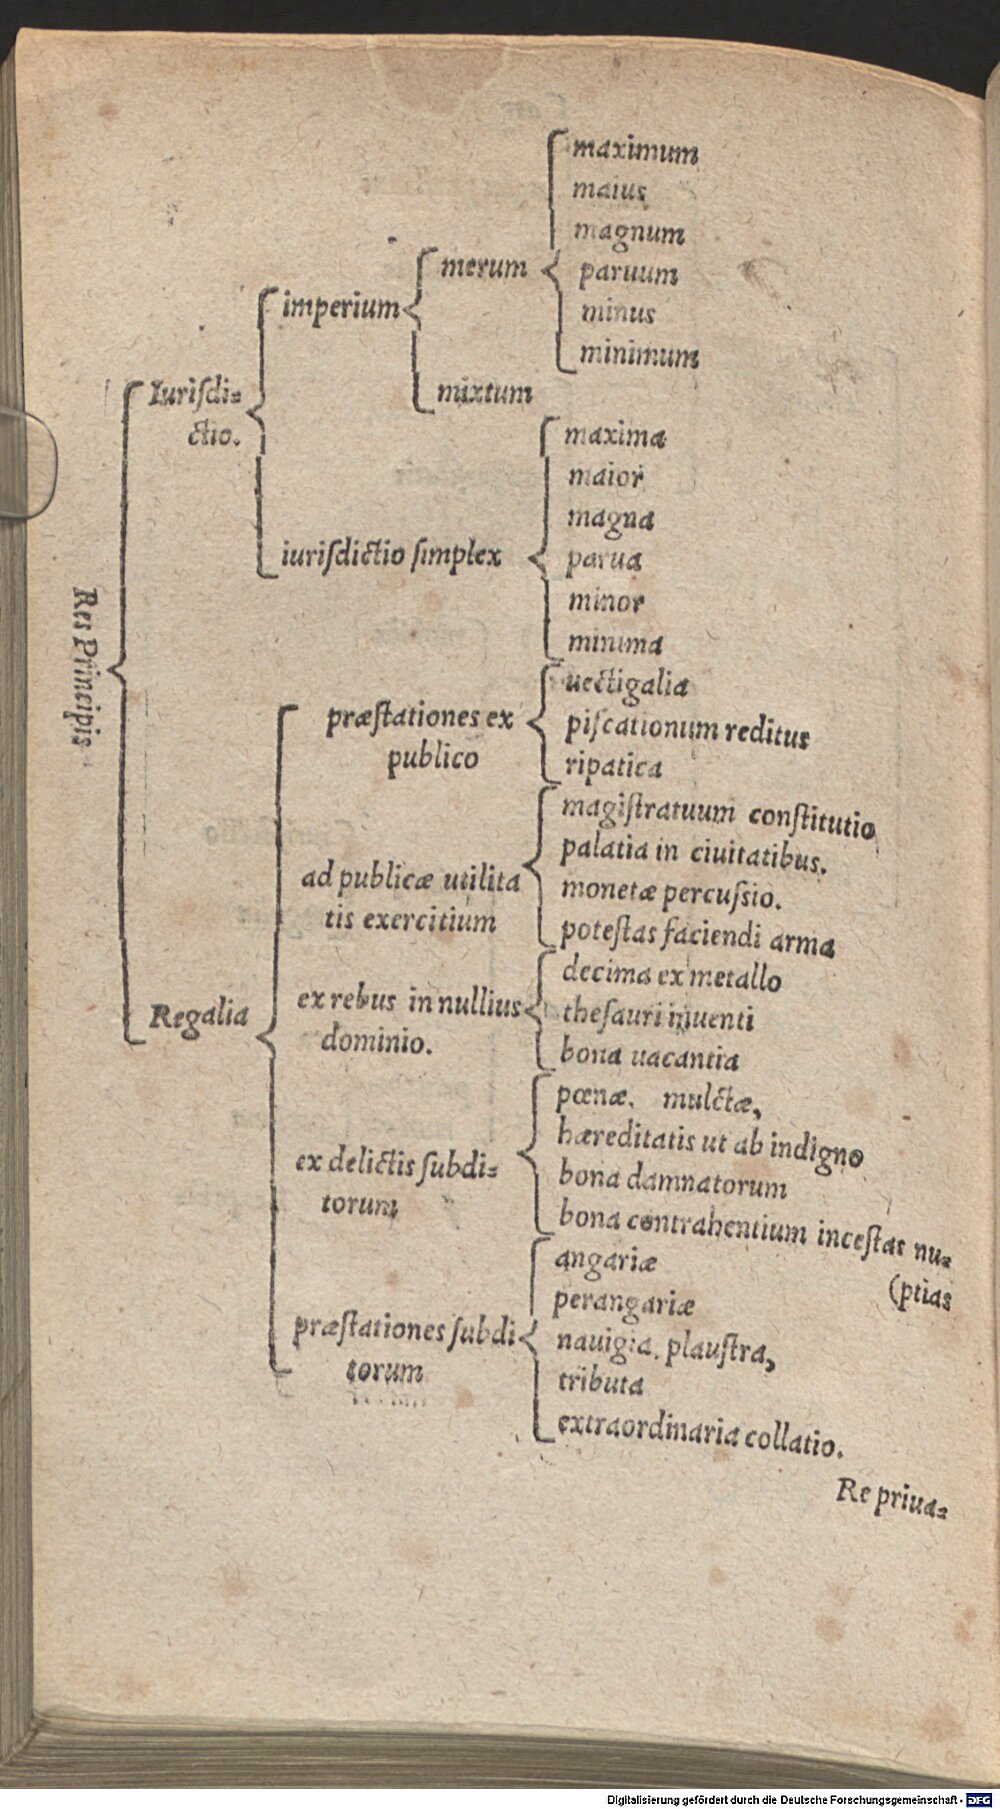 Res Principis
Iuriſdi=
ctio.
imperium
merum
maximum
maius
magnum
paruum
minus
minimum
mixtum
iuriſdictio ſimplex
maxima
maior
magna
parua
minor
minima
Regalia
præſtationes ex
publico
uectigalia
piſcationum reditus
ripatica
ad publicæ utilita
tis exercitium
magiſtratuum conſtitutio
palatia in ciuitatibus.
monetæ percuſsio.
poteſtas faciendi arma
ex rebus in nullius
dominio.
decima ex metallo
theſauri inuenti
bona uacantia
ex delictis ſubdi=
torum
pœnæ. mulctæ,
hæreditatis ut ab indigno
bona damnatorum
bona contrahentium inceſtas nu=
(ptias
præſtationes ſubdi
torum
angariæ
perangariæ
nauigia. plauſtra,
tributa
extraordinaria collatio.
Re priua=
Digitalisierung gefördert durch die Deutsche Forschungsgemeinschaft - DFG